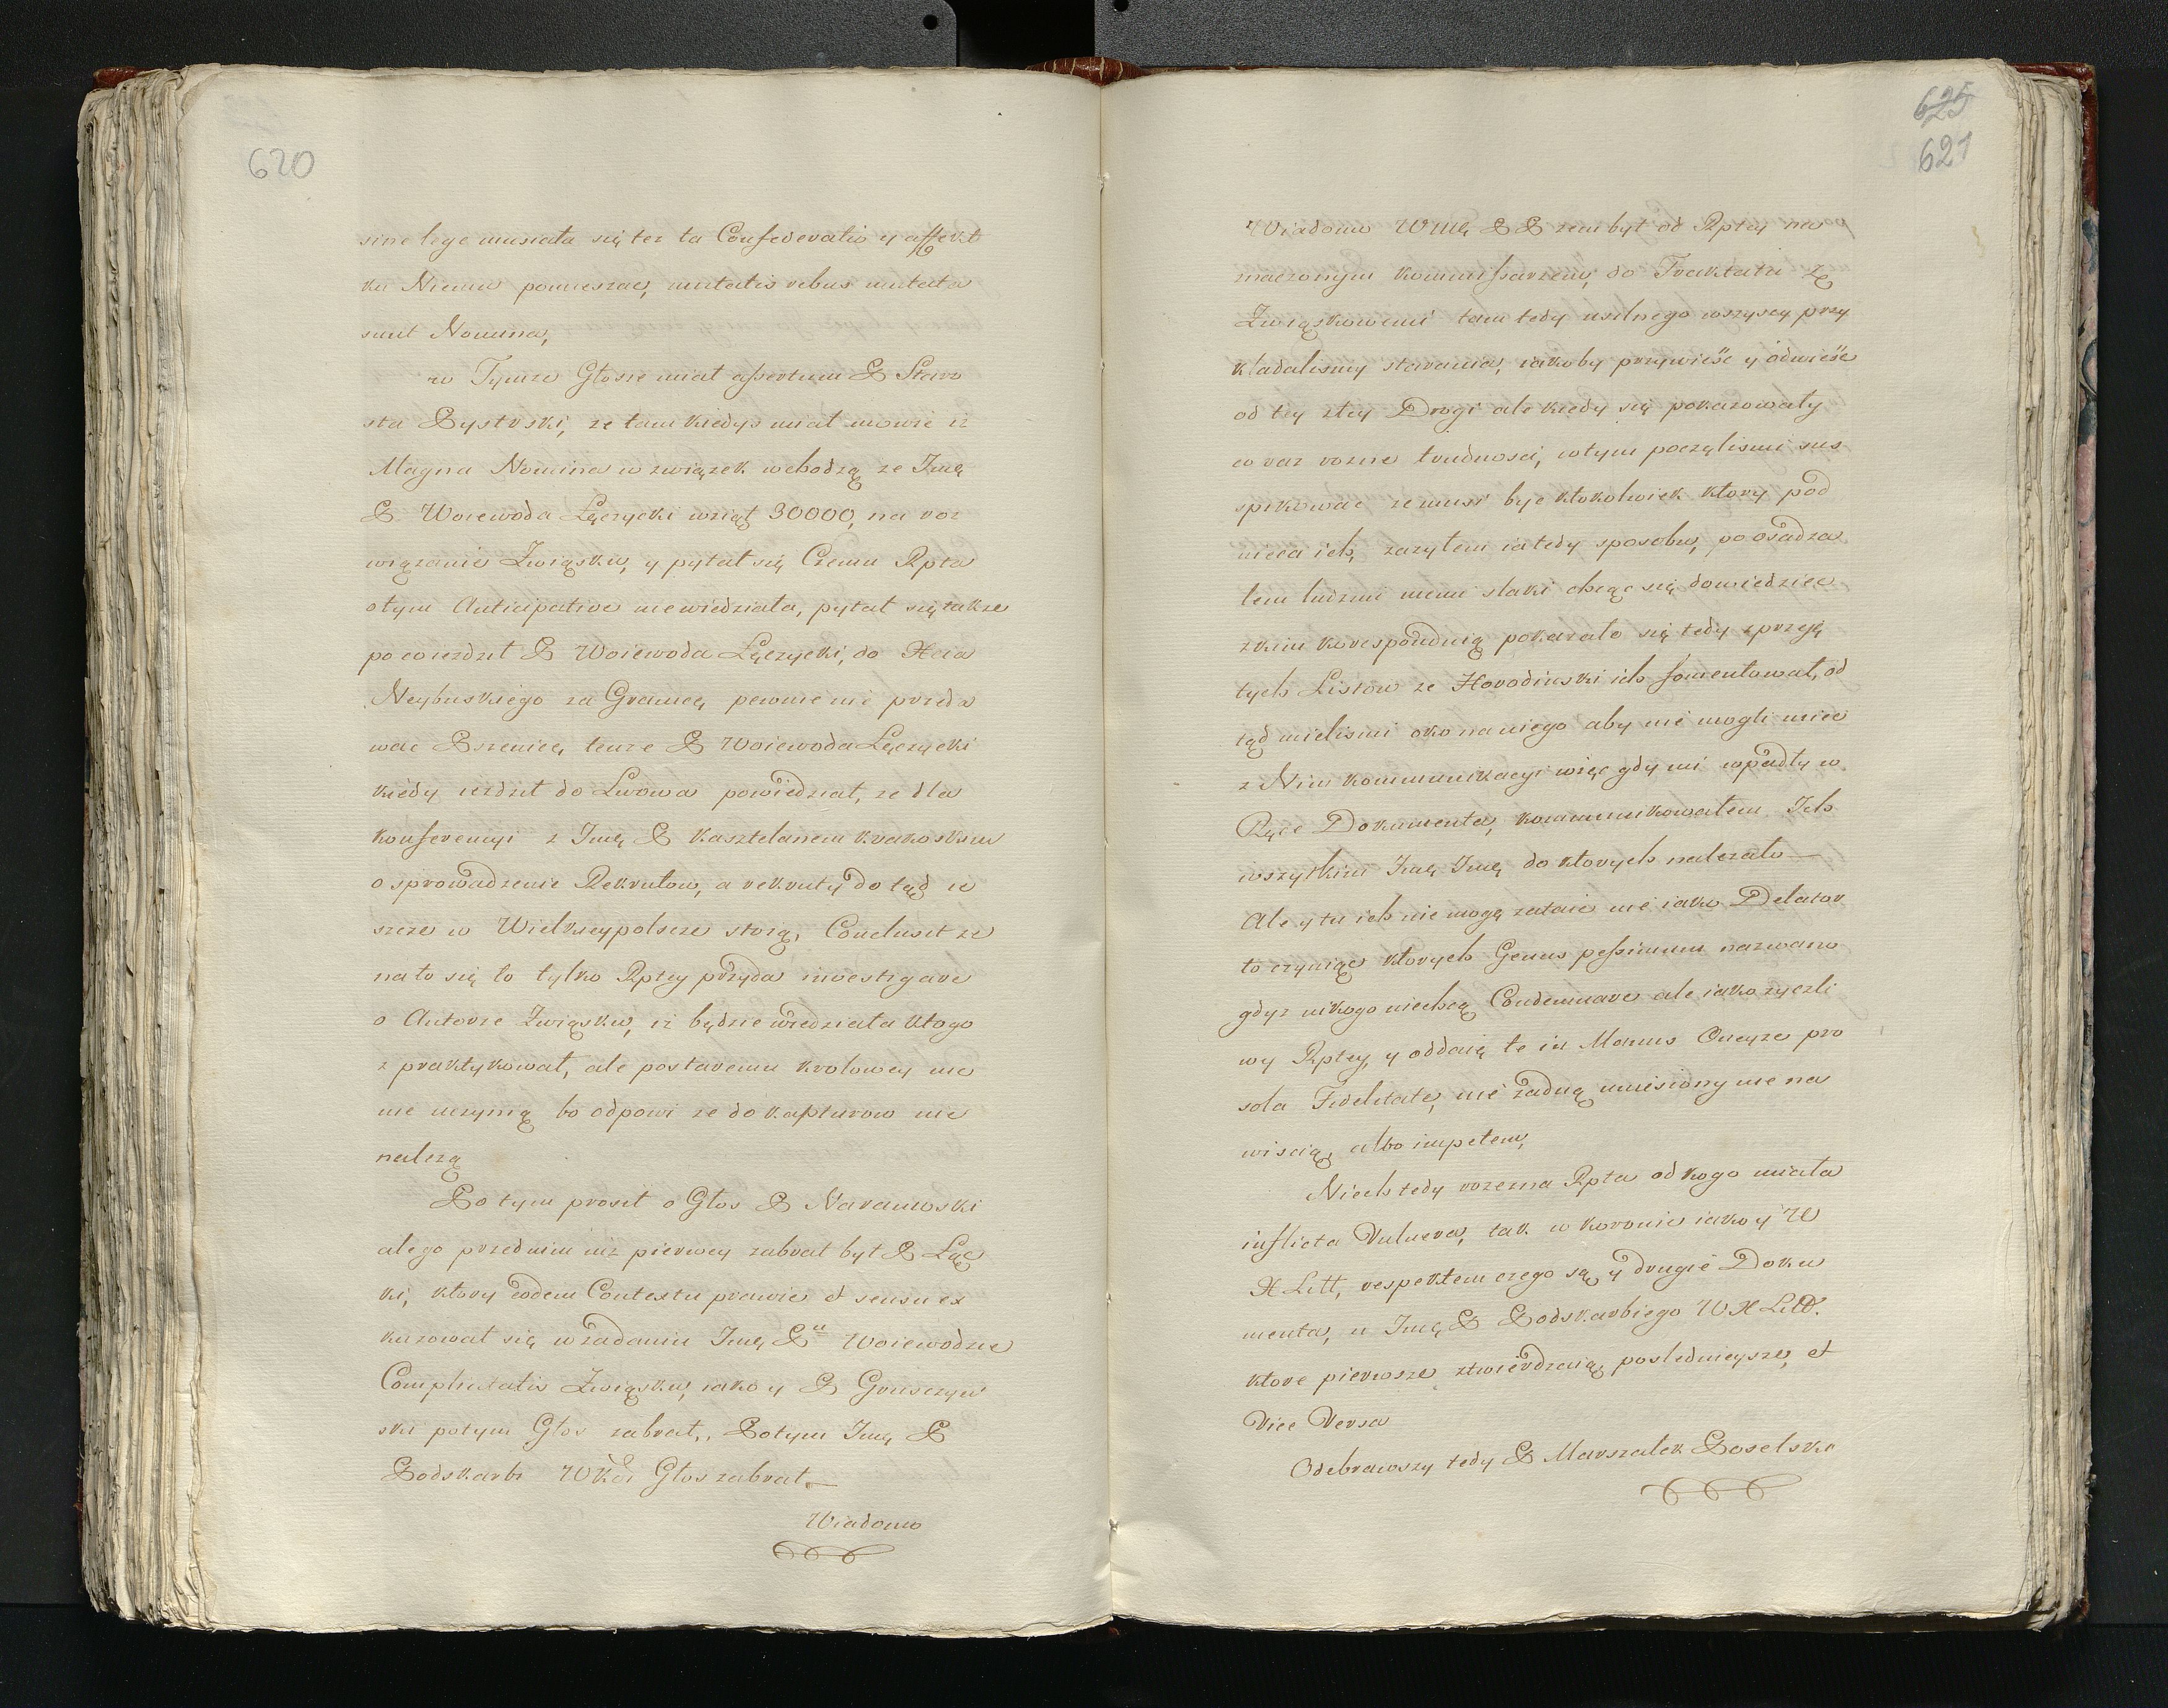 620
sine lege musiała się tez ta Confederatio y affekt
ku Niemu pomieszac, mutatis rebus mutata
sunt Nomina,
w Tymze Głosie miał assertum P Staro
sta Bystrski, ze tam kiedys miał mowic iz
Magna Nomina w związek wchodzą ze Imę
P Woiewoda Łęczycki wziął 30000, na roz
wiązanie Związku, y pytał się Czemu Rpta
otym Anticipative niewiedziała, pytał się takze
po co iezdzit P Woiewoda Łęczycki, do Xcia
Neyburskiego za Granicę pewnie nie przeda
wac Pszenicę, tenze P Woiewoda Łęczycki
kiedy iezdzit do Lwowa powiedział, ze dla
konferencyi z Imę P kasztelanem krakoskim
o sprowadzenie Rekrutow, a rekruty do tąd ie
szcze w Wielkieypolszcze stoią, Conclusit ze
nato się to tylko Rptey przyda investigare
o Autorze Związku, iz będzie wiedziała ktogo
z praktykował, ale postaremu krolowey nic
nie uczynią bo odpowi ze do kapturow nie
nalezą
Potym prosił o Głos P Naramoski
alego przednim niz pierwey zabrał był P Łąc
ki, ktory eodem Contextu prawie et sensu ex
kuzował się w zadaniu Imę Pu Woiewodzie
Complicitatis Związku, iako y P Gruszczyn
ski potym Głos zabrał,. Potym Imę P
Podskarbi WKor Głos zabrał
Wiadomo
625
621
Wiadomo WMę P P zem był od Rptey na
znaczonym kommissarzem, do Traktatu Ze
Związkowemi tam tedy usilnego wszyscy przy
kładalismy starania, iakoby przywieść y odwieść
od tey złey Drogi ale kiedy się pokazowały
co raz rozne trudnosci, w tym poczęlismi sus
spikowac ze musi byc ktokolwiek ktory pod
nieca ich, zazyłem ia tedy sposobu, po osadza
łem ludzmi memi slaki chcąc się dowiedziec
z kim korespondują pokazało się tedy z przeię
tych Listow ze Horodinski ich fomentował, od
tąd mielismi oko na niego aby nie mogli miec
z Nim kommunikacyi więc gdy mi wpadły w
Ręce Dokumenta, kommunikowałem Ich
wszytkim Imę Imę do ktorych nalezało
Ale y tu ich nie mogę zataic nie iako Delator
to czyniąc ktorych Genus pessimum nazwano
gdyz nikogo niechcą Condemnare ale iako zyczli
wy Rptey, y oddaię te in Manus Oneyze pro
sola Fidelitate, nie zadną uniesiony nie na
wiscią, albo impetem,
Niech tedy rozezna Rpta od kogo miała
inflicta Vulnera, tak w koronie iako y W
X Litt, respektem czego są y drugie Doku
menta, u Imę P Podskarbiego WXLitt.
ktore pierwsze ztwierdzaią poslednieysze, et
Vice Versa
Odebrawszy tedy P Marszałek Poselski